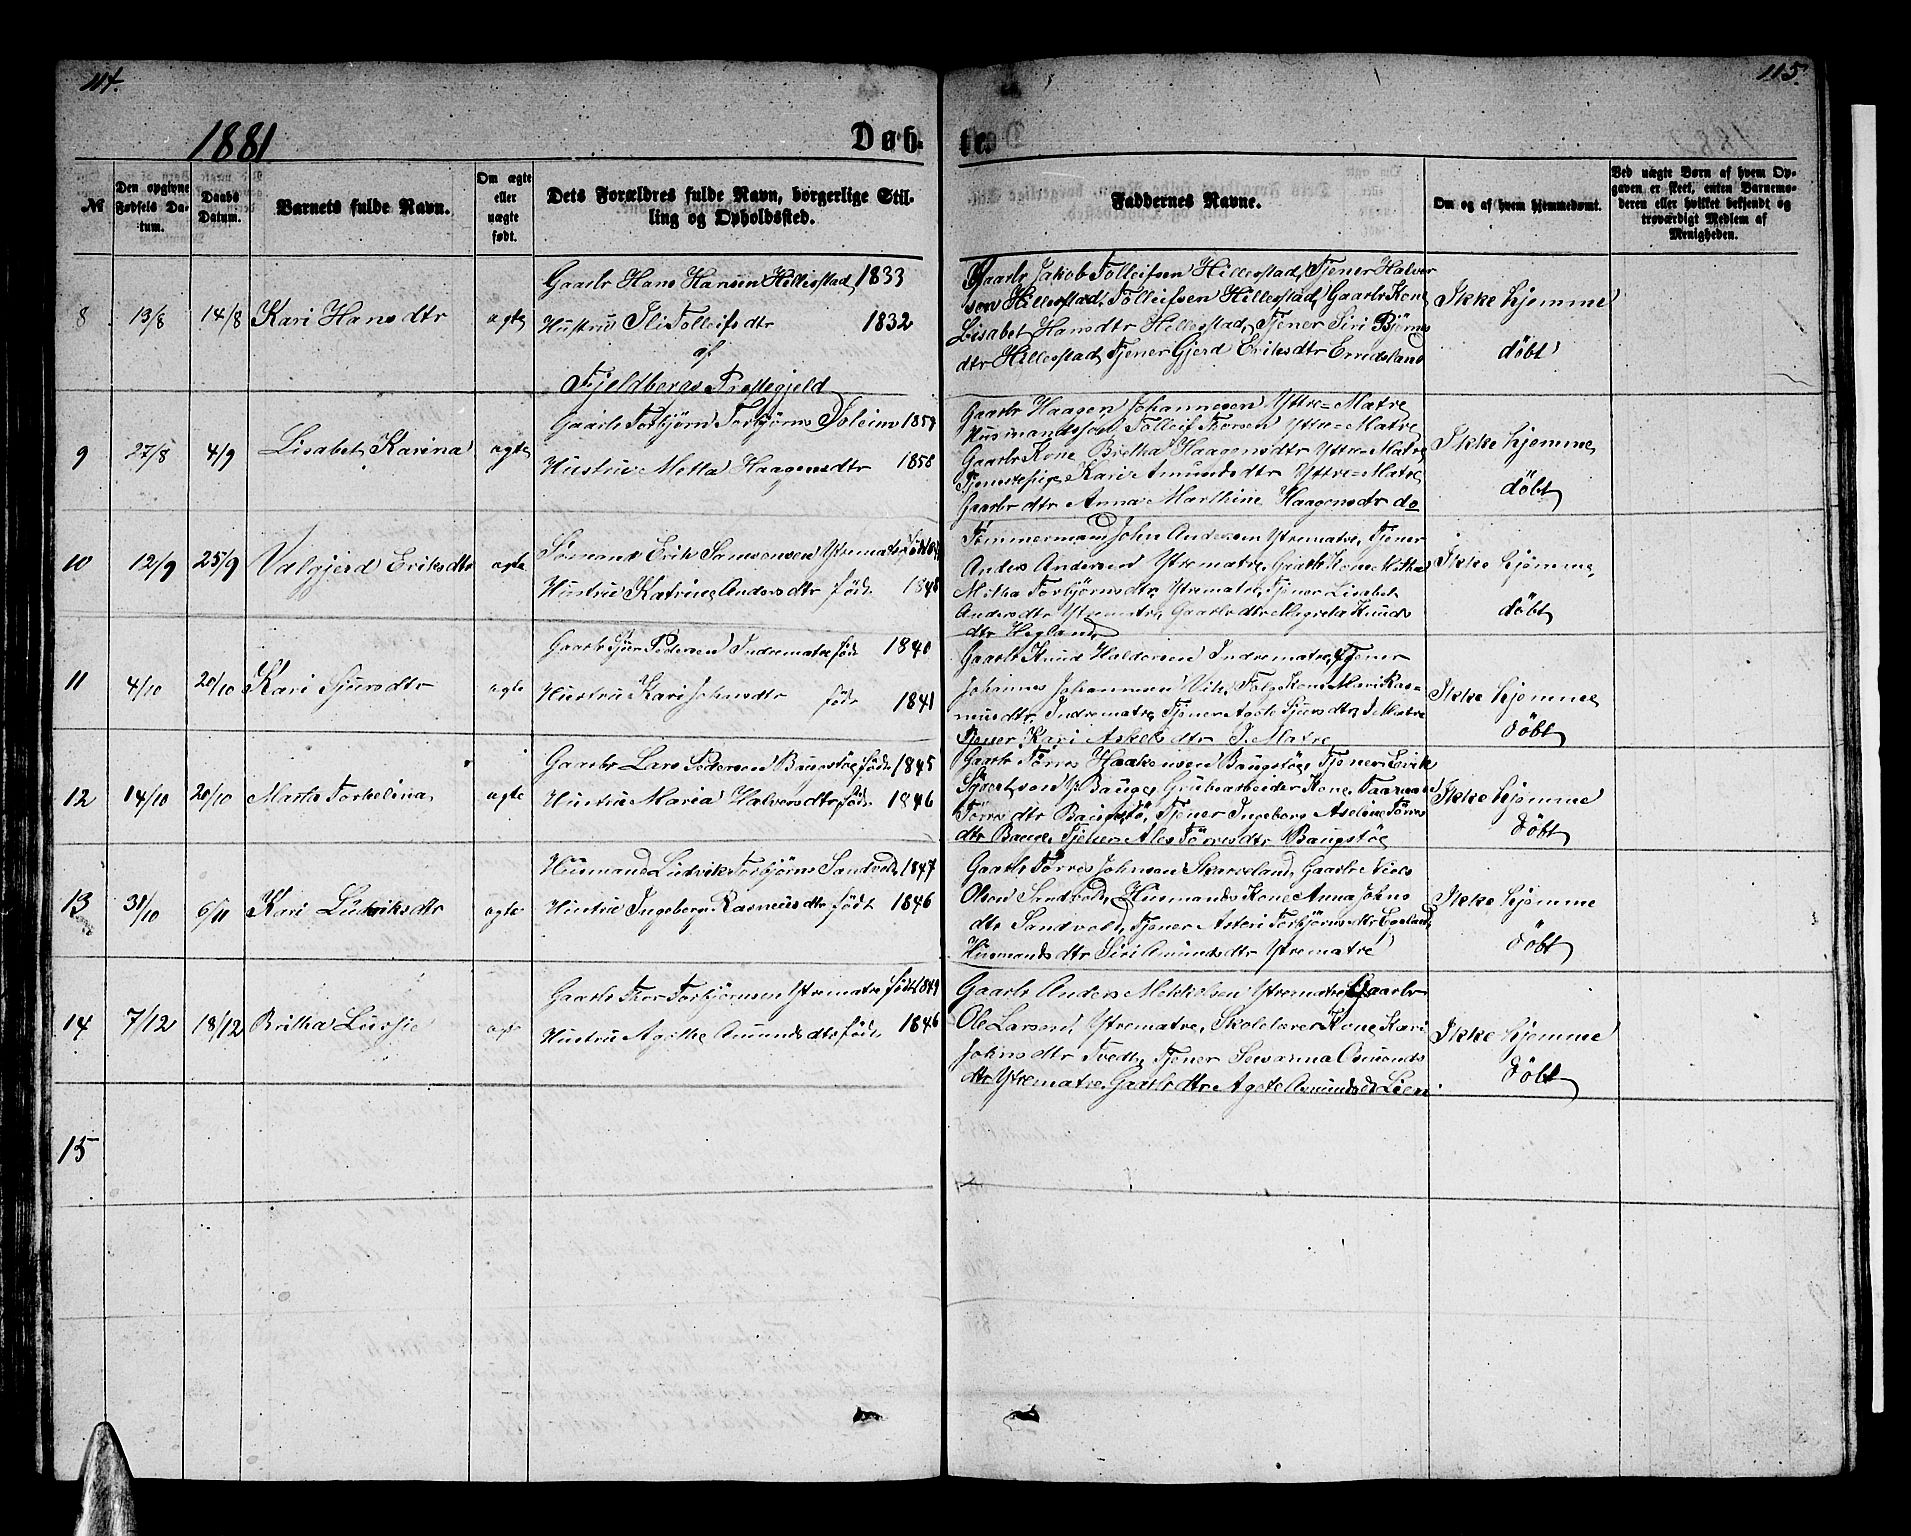 114.
115.
1881
Døb-
te.
№
Den opgivne Fødsels Da-
tum.
Daabs
Datum.
Barnets fulde Navn.
Om ægte
eller
uægte
født.
Dets Forældres fulde Navn, borgerlige Stil-
ling og Opholdssted.
Faddernes Navne.
Om og af hvem hjemmedøbt.
Ved uægte Børn af hvem Op-
gaven er skeet, enten Barnemo-
deren eller hvilket bekjendt og
troværdigt Medlem af
Menigheden.
8 13/8 14/8 Kari Hansdtr ægte
Gaarbr Hans Hansen Hillestad 1833
Hustru Ili Tolleifsdtr 1832
af
Fjeldbergs Prestegjeld
Gaarbr Jakob Tolleifsen Hillestad, Tjener Halver
sen Hillestad, Tolleifsen Hillestad, Gaarbr Kone
Lisabet Hansdtr Hillestad, Tjener Siri Bjørns
dtr Hillestad, Tjener Gjerd Eriksdtr Emdsland
Ikke hjemme
døbt
9 27/8 4/9 Lisabet Karina ægte
Gaarbr Torbjørn Torbjørns Toleim 1857
Hustru Metta Haagensdtr 1858
Gaarbr Haagen Johannesen Yttre-Matre
Husmandssøn Tolleif Torsen Yttre-Matre
Gaarbr Kone Bretha Haagensdtr Yttre-Matre
Tjenestepige Kari Amundsdtr Yttre-Matre
Gaarbr dtr Anna Marthine Haagensdtr do
Ikke hjemme
døbt
10 12/9 25/9 Valgjerd Eriksdtr ægte
Sømand Erik Samsonsen Ytrematre født
Hustru Katrine Andersdtr født 1848
Tømmermand John Andersen Ytrematre, Tjener
Anders Andersen Ytrematre, Gaarbr Kone Mitha
Mitha Torbjørnsdtr Ytrematre, Tjener Lisabet
Andersdtr Ytrematre, Gaarbr dtr Megreta Knuds
dtr Hegland
Ikke hjemme
døbt
11 4/10 20/10 Kari Sjursdtr ægte
Gaarbr Sjur Pedersen Indrematre født 1840
Hustru Kari Johnsdtr født 1841
Gaarbr Knud Haldersen Indrematre, Tjener
Johannes Johannesen Vik, Følge Kone Mari Ras-
musdtr Indrematre, Tjener Aaste Sjursdtr I Matre
Tjener Kari Askelsdtr I. Matre
Ikke hjemme
døbt
12 14/10 20/10 Marta Torkelina ægte
Gaarbr Lars Pedersen Baugstøe født 1845
Hustru Maria Halversdtr født 1846
Gaarbr Tørres Haakensen Baugstøe, Tjener Erik
Bauge, Grubearbeider Kone
Tørresdtr Baugstø, Tjener Ingeborg Aseline Tørres
dtr Bauge, Tjener Ales Tørresdtr Baugstøe
Ikke hjemme
døbt
13 31/10 6/11 Kari Ludviksdtr ægte
Husmand Ludvik Torbjørns Sandvold 1847
Hustru Ingeborg Rasmusdtr født 1846
Gaarbr Tørres Johnsen Skarveland, Gaarbr Niels
Olsen Sandvold, Husmands Kone Anna Johns
dtr Sandvold, Tjener Asteri Torbjørnsdtr Egeland
Husmandsdtr Siri Amundsdtr Ytrematre
Ikke hjemme
døbt
14 7/12 18/12 Britha Lovise ægte
Gaarbr Tor Torbjørnsen Ytrematre født 1849
Hustru Agithe Amundsdtr født 1846
Gaarbr Anders Mikkelsen Ytrematre, Gaarbr
Ole Larsen, Ytrematre, Skolelærer Kone Kari
Johnsdtr Tvedt, Tjener Sewanna Osmunds
dtr Ytrematre, Gaarbr dtr Agate Amundsd Lien
Ikke hjemme
døbt
15